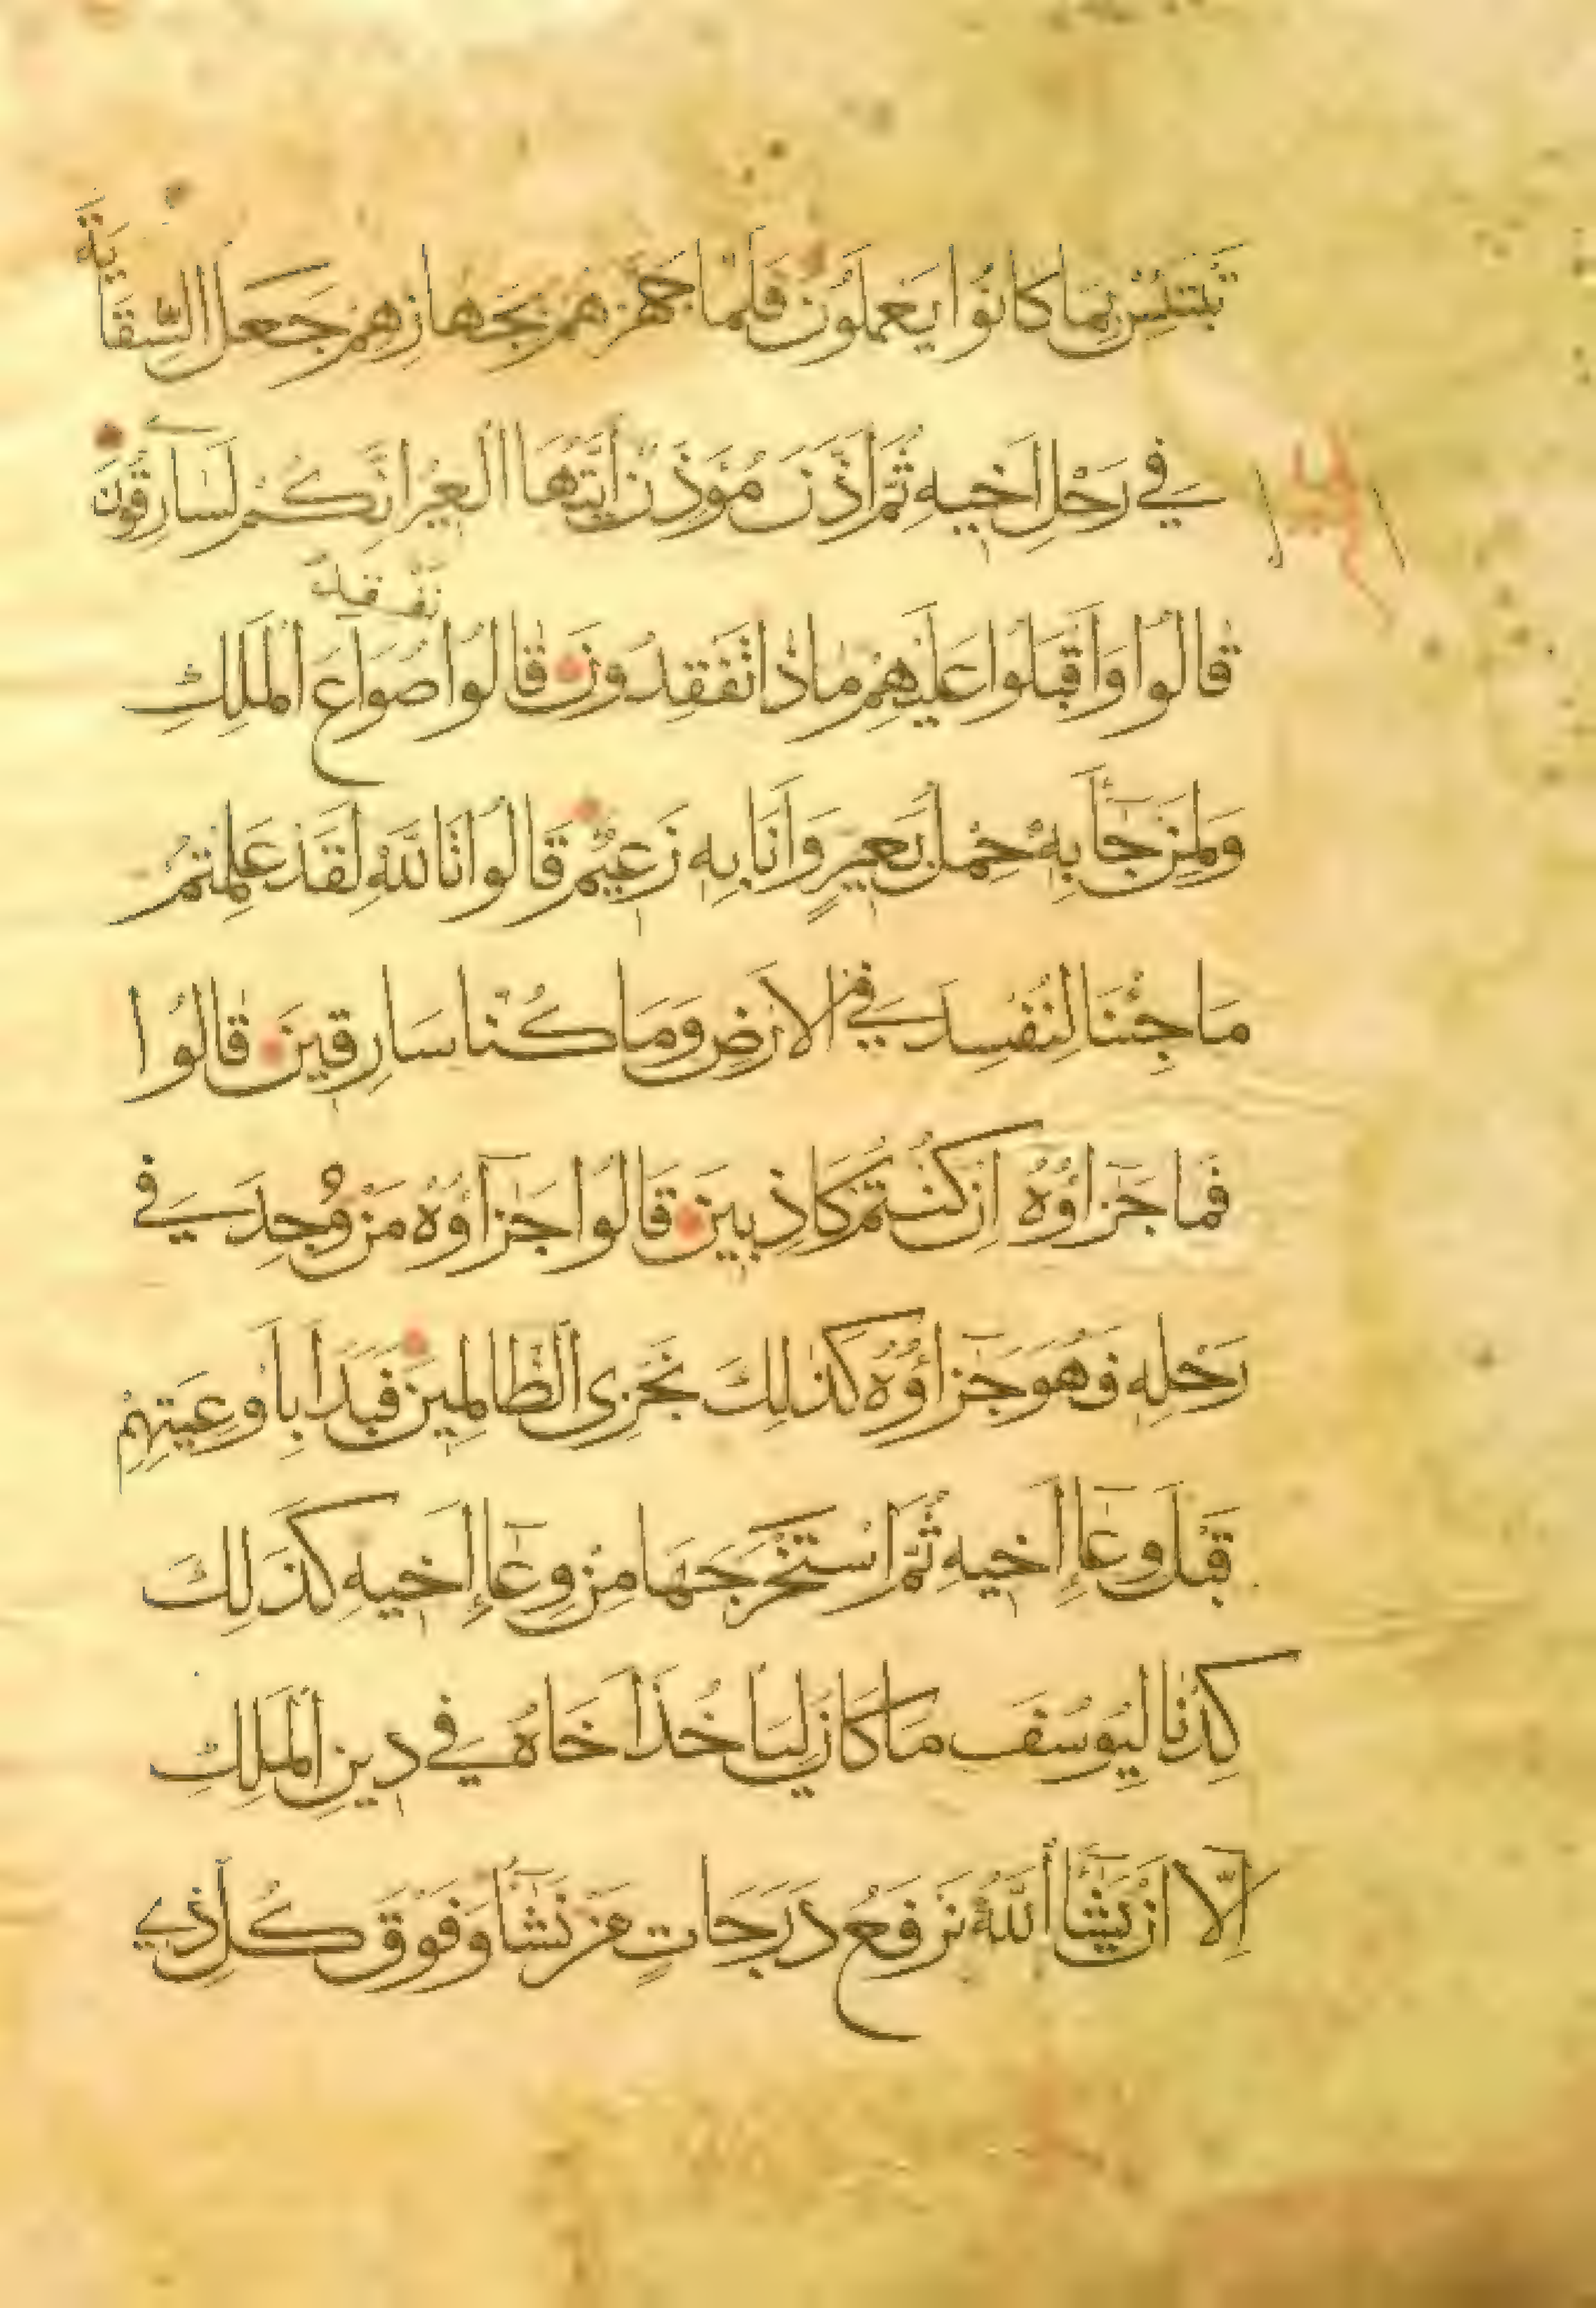 تَبْتَئِسْ بِمَا كَانُوا يَعْمَلُونَ فَلَمَّا جَهَّزَهُمْ بِجَهَازِهِمْ جَعَلَ السِّقَايَةَ
فِي رَحْلِ اَخِيهِ ثُمَّ اَذَّنَ مُؤَذِّنٌ اَيَّتُهَا الْعِيرُ اِنَّكُمْ لَسَارِقُونَ
قَالُوا وَاَقْبَلُوا عَلَيْهِمْ مَاذَا تَفْقِدُونَ قَالُوا نَفْقِدُ صُوَاعَ الْمَلِكِ
وَلِمَنْ جَآءَ بِهِ حِمْلُ بَعِيرٍ وَاَنَا بِهِ زَعِيمٌ قَالُوا تَاللّٰهِ لَقَدْ عَلِمْتُمْ
مَا جِئْنَا لِنُفْسِدَ فِي الْاَرْضِ وَمَا كُنَّا سَارِقِينَ قَالُوا
فَمَا جَزَاؤُهُ اِنْ كُنْتُمْ كَاذِبِينَ قَالُوا جَزَآؤُهُ مَنْ وُجِدَ فِي
رَحْلِهِ فَهُوَ جَزَآؤُهُ كَذٰلِكَ نَجْزِي الظَّالِمِينَ فَبَدَاَ بِاَوْعِيَتِهِمْ
قَبْلَ وِعَآءِ اَخِيهِ ثُمَّ اسْتَخْرَجَهَا مِنْ وِعَآءِ اَخِيهِ كَذَلِكَ
كِدْنَا لِيُوسُفَ مَا كَانَ لِيَاْخُذَ اَخَاهُ فِي دِينِ الْمَلِكِ
اِلَّا اَنْ يَشَآءَ اللّٰهُ نَرْفَعُ دَرَجَاتٍ مَنْ نَشَآءُ وَفَوْقَ كُلِّ ذِي